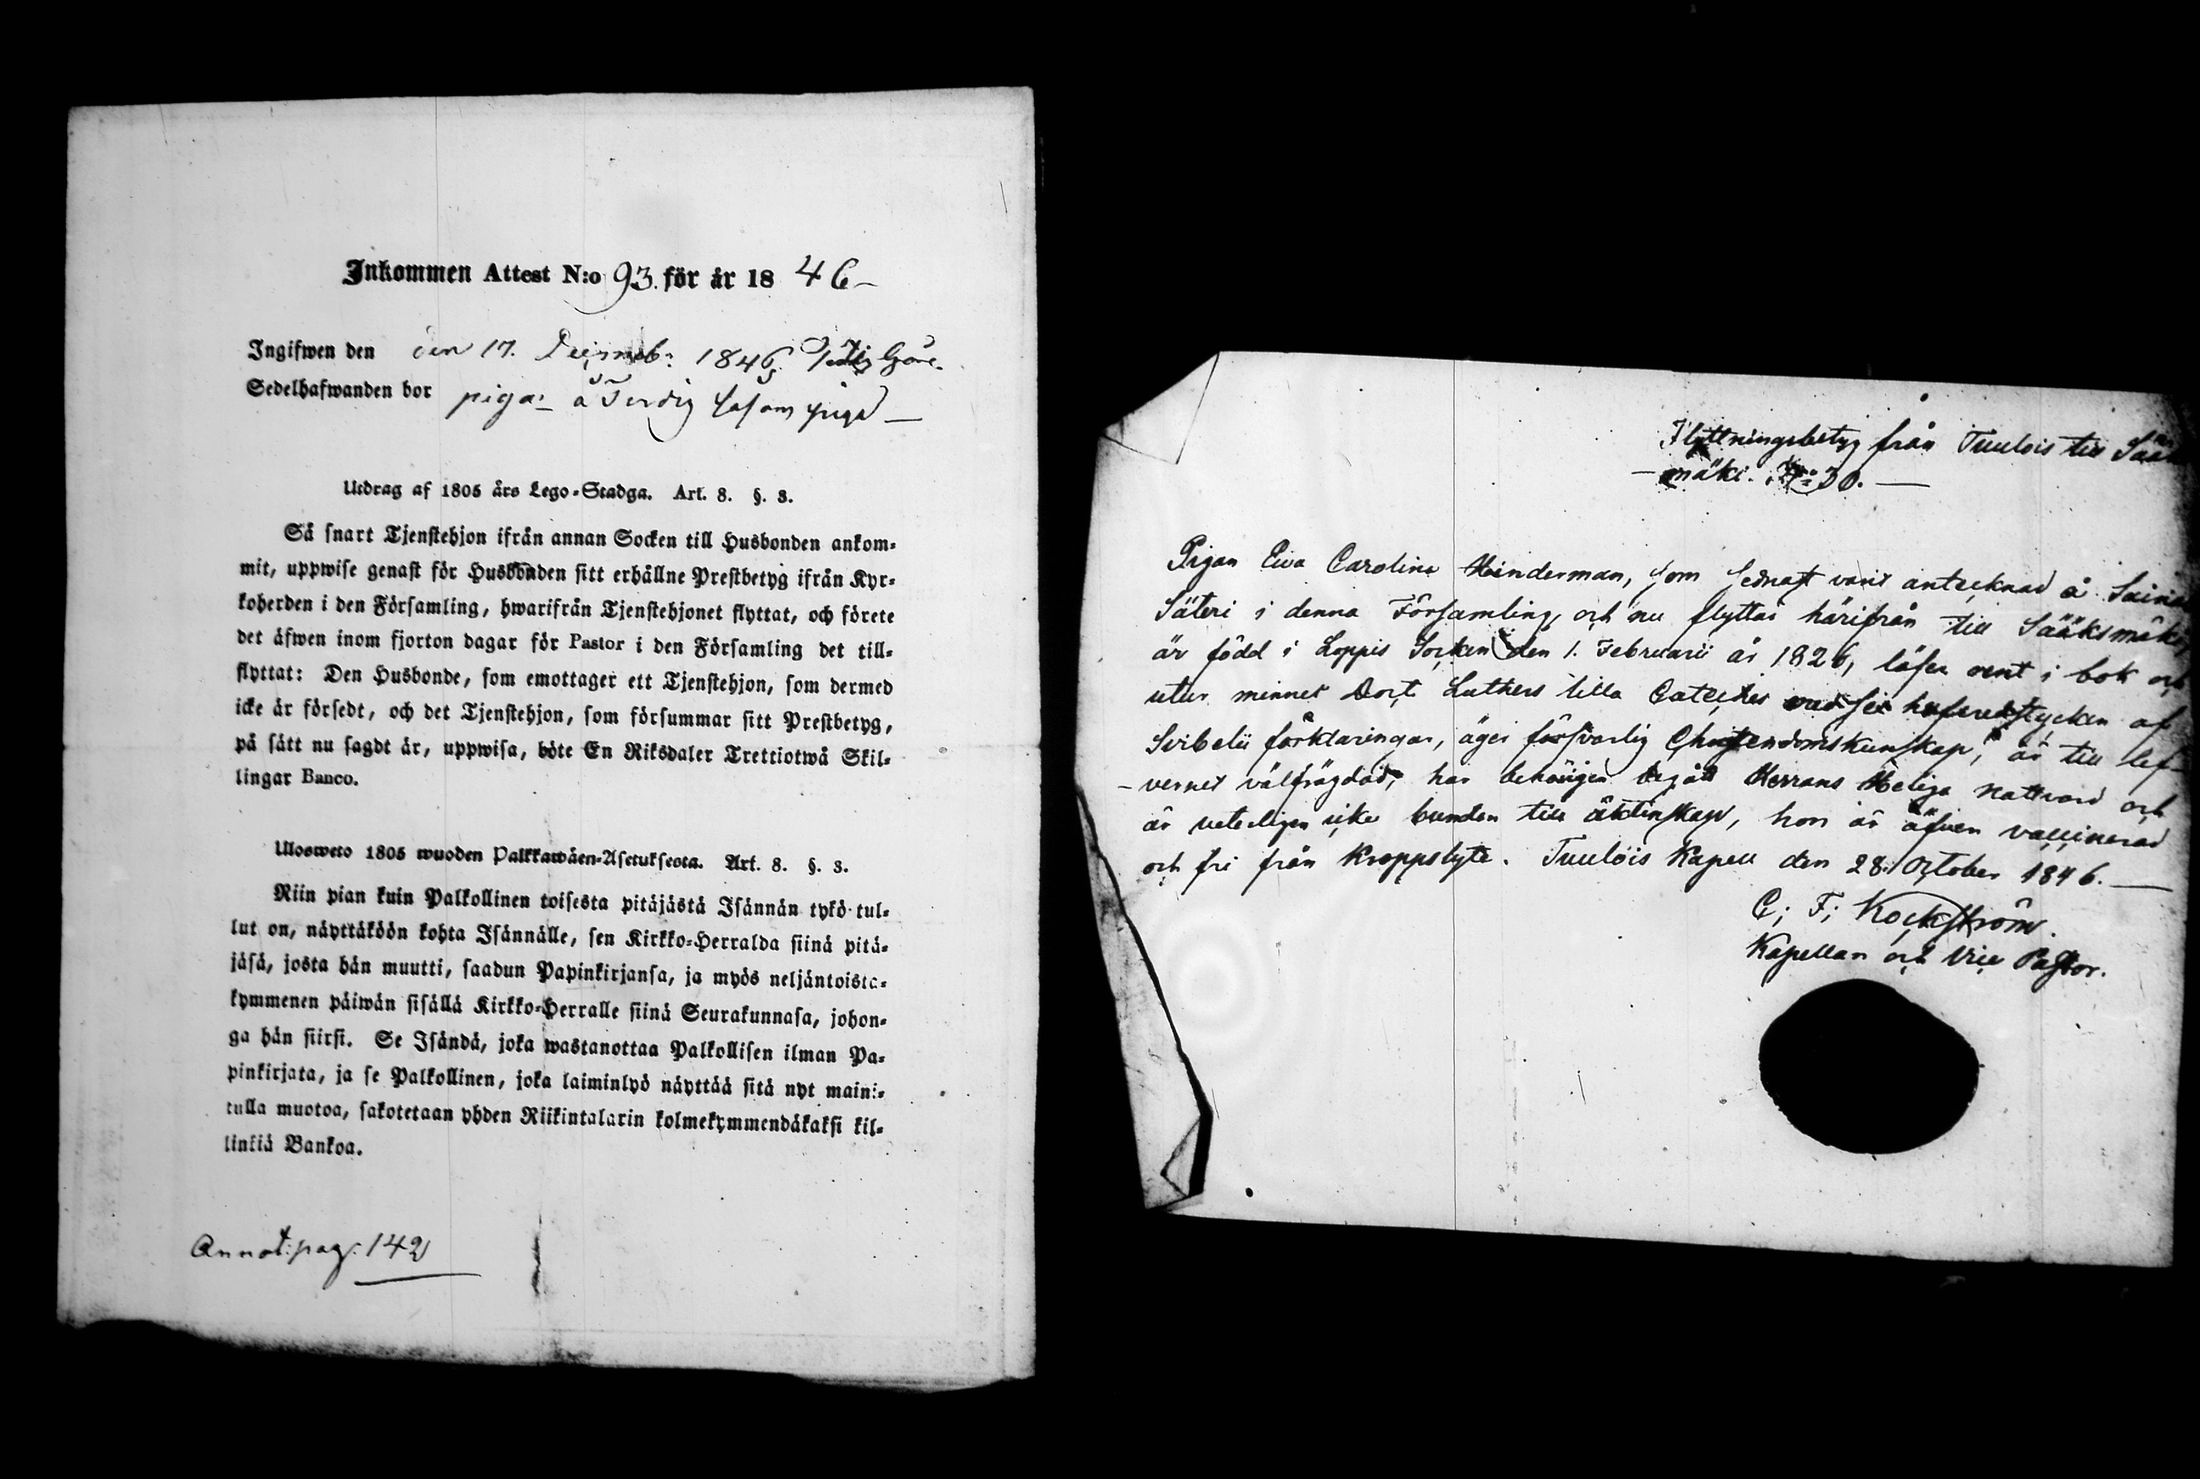 Inkommen Attest N:o 93. för år 1846
Ingifwen den den 17. Decemb: 1846
Sedelhafwanden bor piga: å såsom piga
Utdrag af 1805 års Lego-Stadga. Art. 8. §. 3.
Så snart Tjenstehjon ifrån annan Socken till Husbonden ankom-
mit, uppwise genast för Husbonden sitt erhållne Prestbetyg ifrån Kyr-
koherden i den Församling, hwarifrån Tjenstehjonet flyttat, och förete
det äfwen inom fjorton dagar för Pastor i den Församling det till-
flyttat: Den Husbonde, som emottager ett Tjenstehjon, som dermed
icke är försedt, och det Tjenstehjon, som försummar sitt Prestbetyg,
på sätt nu sagdt är, uppwisa, böte En Riksdaler Trettiotwå Skil-
lingar Banco.
Ulosweto 1805 wuoden Palkkawäen-Asetuksesta. Art. 8. §. 3.
Niin pian kuin Palkollinen toisesta pitäjästä Isännän tykö tul-
lut on, näyttäköön kohta Isännälle, sen Kirkko-Herralda siinä pitä-
jäsä, josta hän muutti, saadun Papinkirjansa, ja myös neljäntoista-
kymmenen päiwän sisällä Kirkko-Herralle siinä Seurakunnasa, johon-
ga hän siirsi. Se Isändä, joka wastanottaa Palkollisen ilman Pa-
pinkirjata, ja se Palkollinen, joka laiminlyö näyttää sitä nyt maini-
tulla muotoa, sakotetaan yhden Riikintalarin kolmekymmendäkaksi kil-
linkiä Bankoa.
Annot: pag: 142
Flyttningsbetyg från Tuulois till Sääx
-mäki. N:o 30.
Pigan Eva Carolina Hinderman, som sednast varit antecknad å
Säteri i denna Församling, och nu flyttar härifrån till Sääksmäki,
är född i Loppis Socken den 1. Februarii år 1826, läser rent i bok och
utur minnet Doct. Luthers lilla Cateches med hufvudstycken af
Svibelii förklaringar, äger försvarlig Christendomskunskap, är till lef-
-vernet välfrägdad, har behörigen begått Herrans Heliga Nattvard och
är veterligen icke bunden till äktenskap, hon är äfven vaccinerad
och fri från Kroppslyte. Tuulois Kapell den 28. October 1846.
C; F; Kockström.
Kapellan och Vice Pastor.